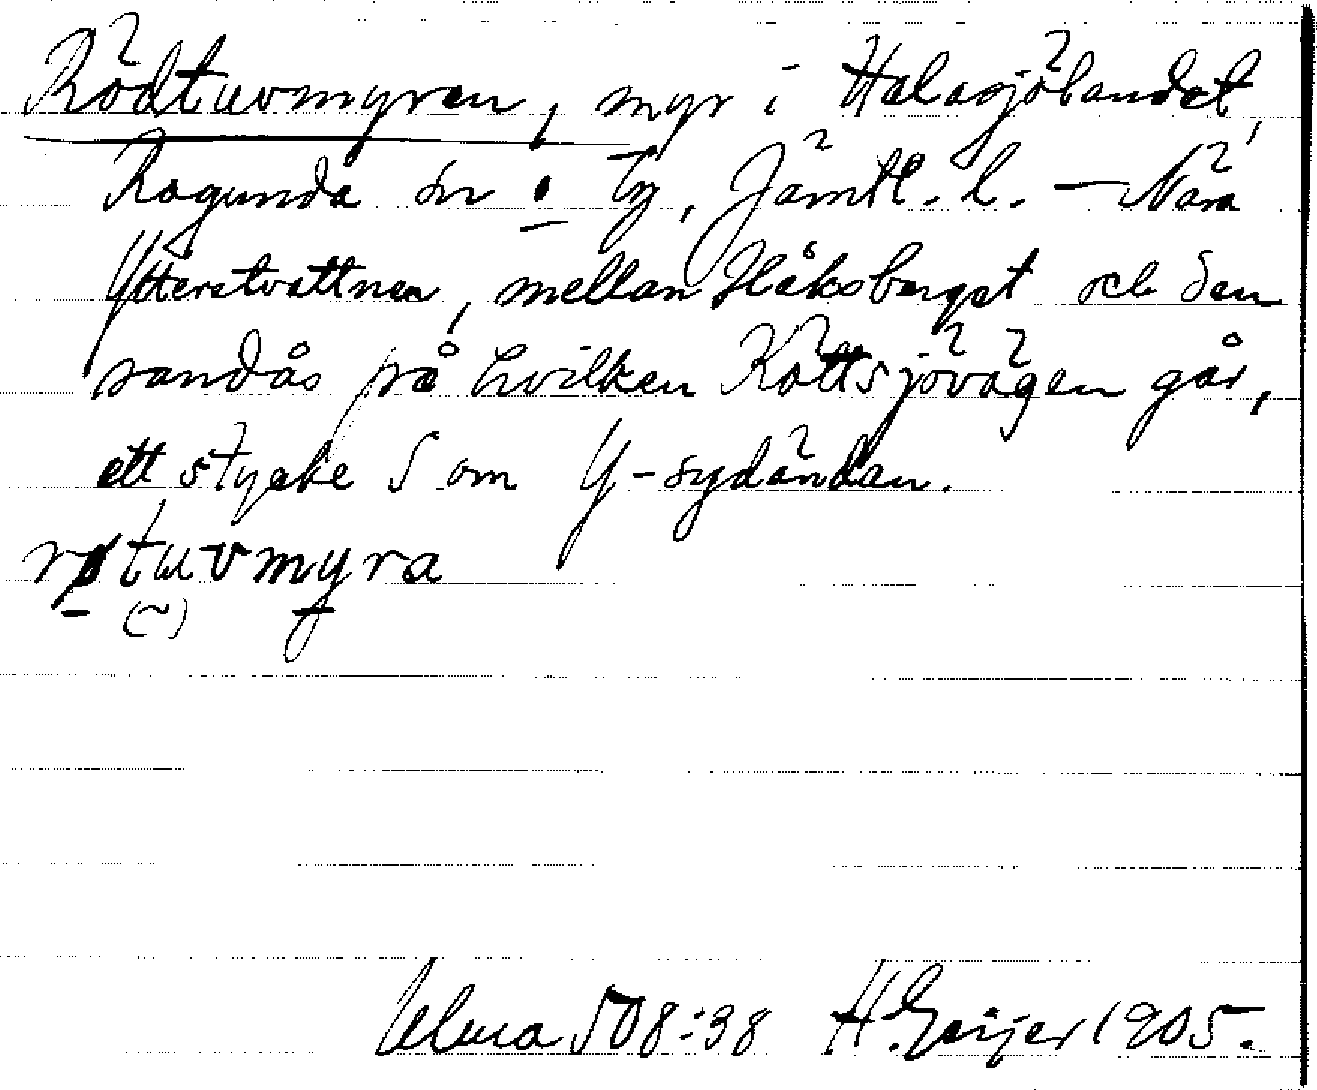 Rödtuvmyren, myr i Halasjölandet,
Ragunda sn o tg, Jämtl. l. – Nära
Ytterstvattnen, mellan Håksberget och den
sandås på hvilken Kättsjövägen går,
ett stycke S om Y-sydändan.
røtuvmyra
(~)
Ulma 508:38 H. Geijer 1905.